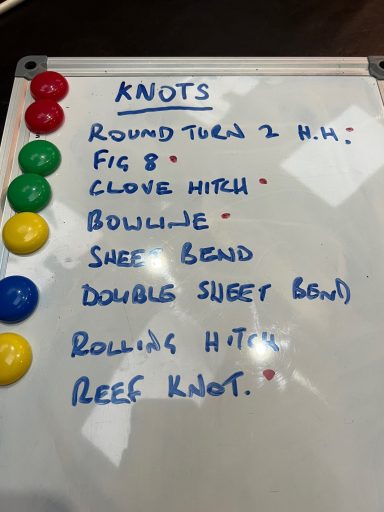 KNOTS
ROUND TURN 2 H.H.
FIG 8
CLOVE HITCH
BOWLINE
SHEET BEND
DOUBLE SHEET BEND
ROLLING HITCH
REEF KNOT.